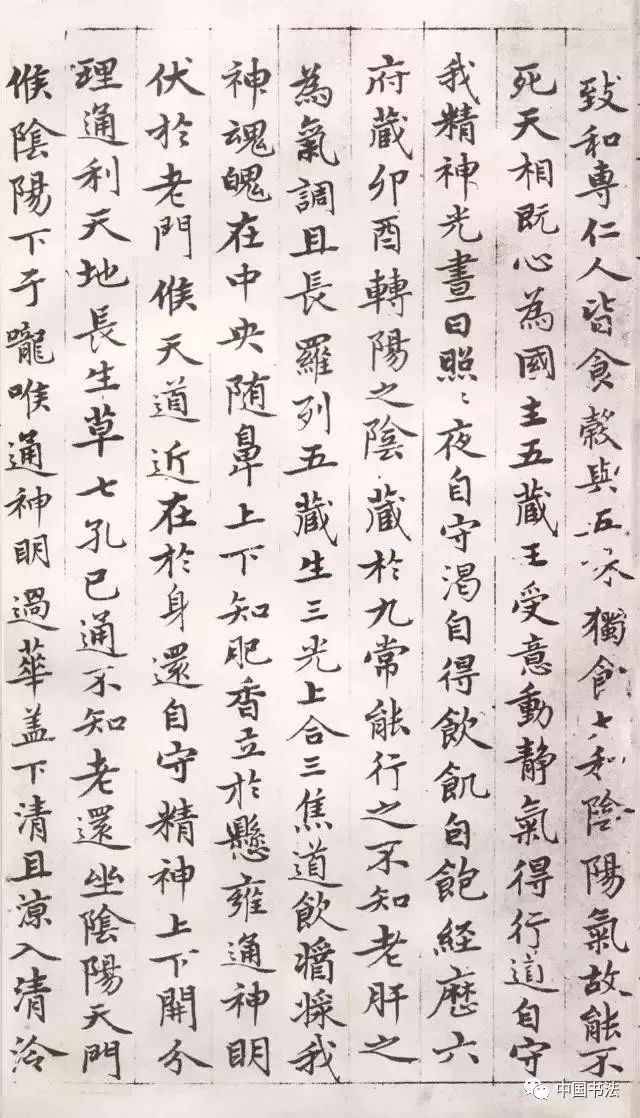 致和専仁人皆食穀與五味獨食大和陰陽氣故能不
死天相既心為國主五藏王受意動静氣得行道自守
我精神光晝日照〻夜自守渇自得飲飢自飽経歷六
府藏卯酉轉陽之陰藏於九常能行之不知老肝之
為氣調且長羅列五藏生三光上合三焦道飲醬採我
神魂魄在中央随鼻上下知肥香立於懸雍通神明
伏於老門候天道近在於身還自守精神上下開分
理通利天地長生草七孔已通不知老還坐陰陽天門
候陰陽下于嚨喉通神明過華盖下清且涼入清泠
中国书法